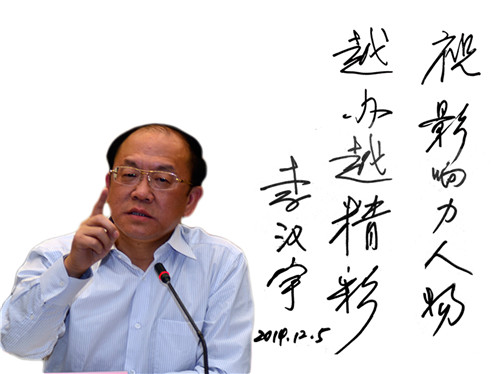 祝影响力人物
越办越精彩
李汉宇
2014.12.5